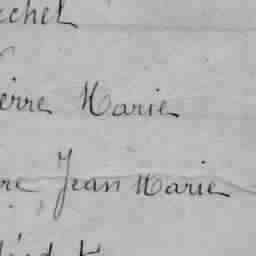 echel
erre Marie
re Jean Marie